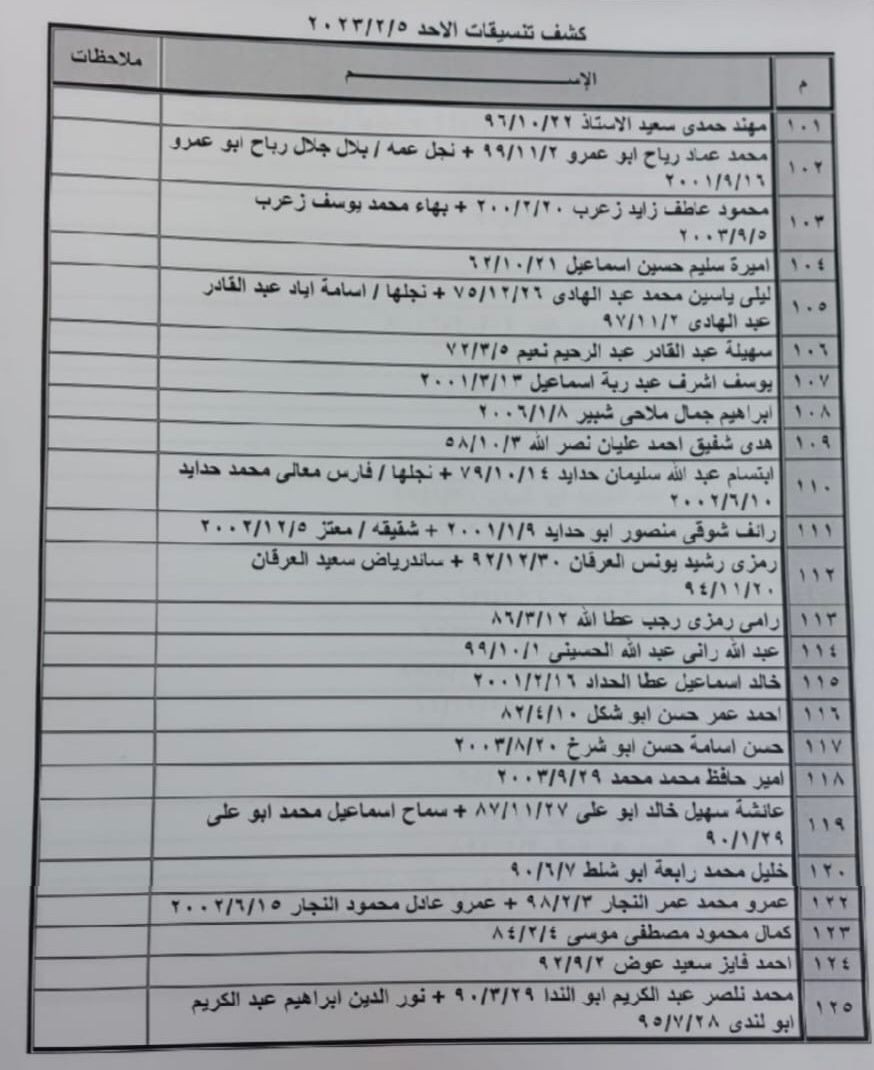 كشف تنسيقات الاحد ٢٠٢٣/٢/٥
م الإســـــم ملاحظات
١٠١ مهند حمدى سعيد الاستاذ ٩٦/١٠/٢٢
١٠٢ محمد عماد رباح ابو عمرو ٩٩/١١/٢ + نجل عمه / بلال جلال رباح ابو عمرو
٢٠٠١/٩/١٦
١٠٣ محمود عاطف زايد زعرب ٢٠٠/٢/٢٠ + بهاء محمد يوسف زعرب
٢٠٠٣/٩/٥
١٠٤ اميرة سليم حسين اسماعيل ٦٢/١٠/٢١
١٠٥ ليلى ياسين محمد عبد الهادى ٧٥/١٢/٢٦ + نجلها / اسامة اياد عبد القادر
عبد الهادى ٩٧/١١/٢
١٠٦ سهيلة عبد القادر عبد الرحيم نعيم ٧٢/٣/٥
١٠٧ يوسف اشرف عبد ربة اسماعيل ٢٠٠١/٣/١٣
١٠٨ ابراهيم جمال ملاحى شبير ٢٠٠٦/١/٨
١٠٩ هدى شفيق احمد عليان نصر الله ٥٨/١٠/٣
١١٠ ابتسام عبد الله سليمان حدايد ٧٩/١٠/١٤ + نجلها / فارس معالى محمد حدايد
٢٠٠٢/٦/١٠
١١١ رائف شوقى منصور ابو حدايد ٢٠٠١/١/٩ + شقيقه / معتز ٢٠٠٢/١٢/٥
١١٢ رمزى رشيد يونس العرقان ٩٢/١٢/٣٠ + ساندرياض سعيد العرقان
٩٤/١١/٢٠
١١٣ رامى رمزى رجب عطا الله ٨٦/٣/١٢
١١٤ عبد الله رانى عبد الله الحسينى ٩٩/١٠/١
١١٥ خالد اسماعيل عطا الحداد ٢٠٠١/٢/١٦
١١٦ احمد عمر حسن ابو شكل ٨٢/٤/١٠
١١٧ حسن اسامة حسن ابو شرخ ٢٠٠٣/٨/٢٠
١١٨ امير حافظ محمد محمد ٢٠٠٣/٩/٢٩
١١٩ عائشة سهيل خالد ابو على ٨٧/١١/٢٧ + سماح اسماعيل محمد ابو على
٩٠/١/٢٩
١٢٠ خليل محمد رابعة ابو شلط ٩٠/٦/٧
١٢٢ عمرو محمد عمر النجار ٩٨/٢/٣ + عمرو عادل محمود النجار ٢٠٠٢/٦/١٥
١٢٣ كمال محمود مصطفى موسى ٨٤/٢/٤
١٢٤ احمد فايز سعيد عوض ٩٢/٩/٢
١٢٥ محمد نلصر عبد الكريم ابو الندا ٩٠/٣/٢٩ + نور الدين ابراهيم عبد الكريم
ابو لندى ٩٥/٧/٢٨